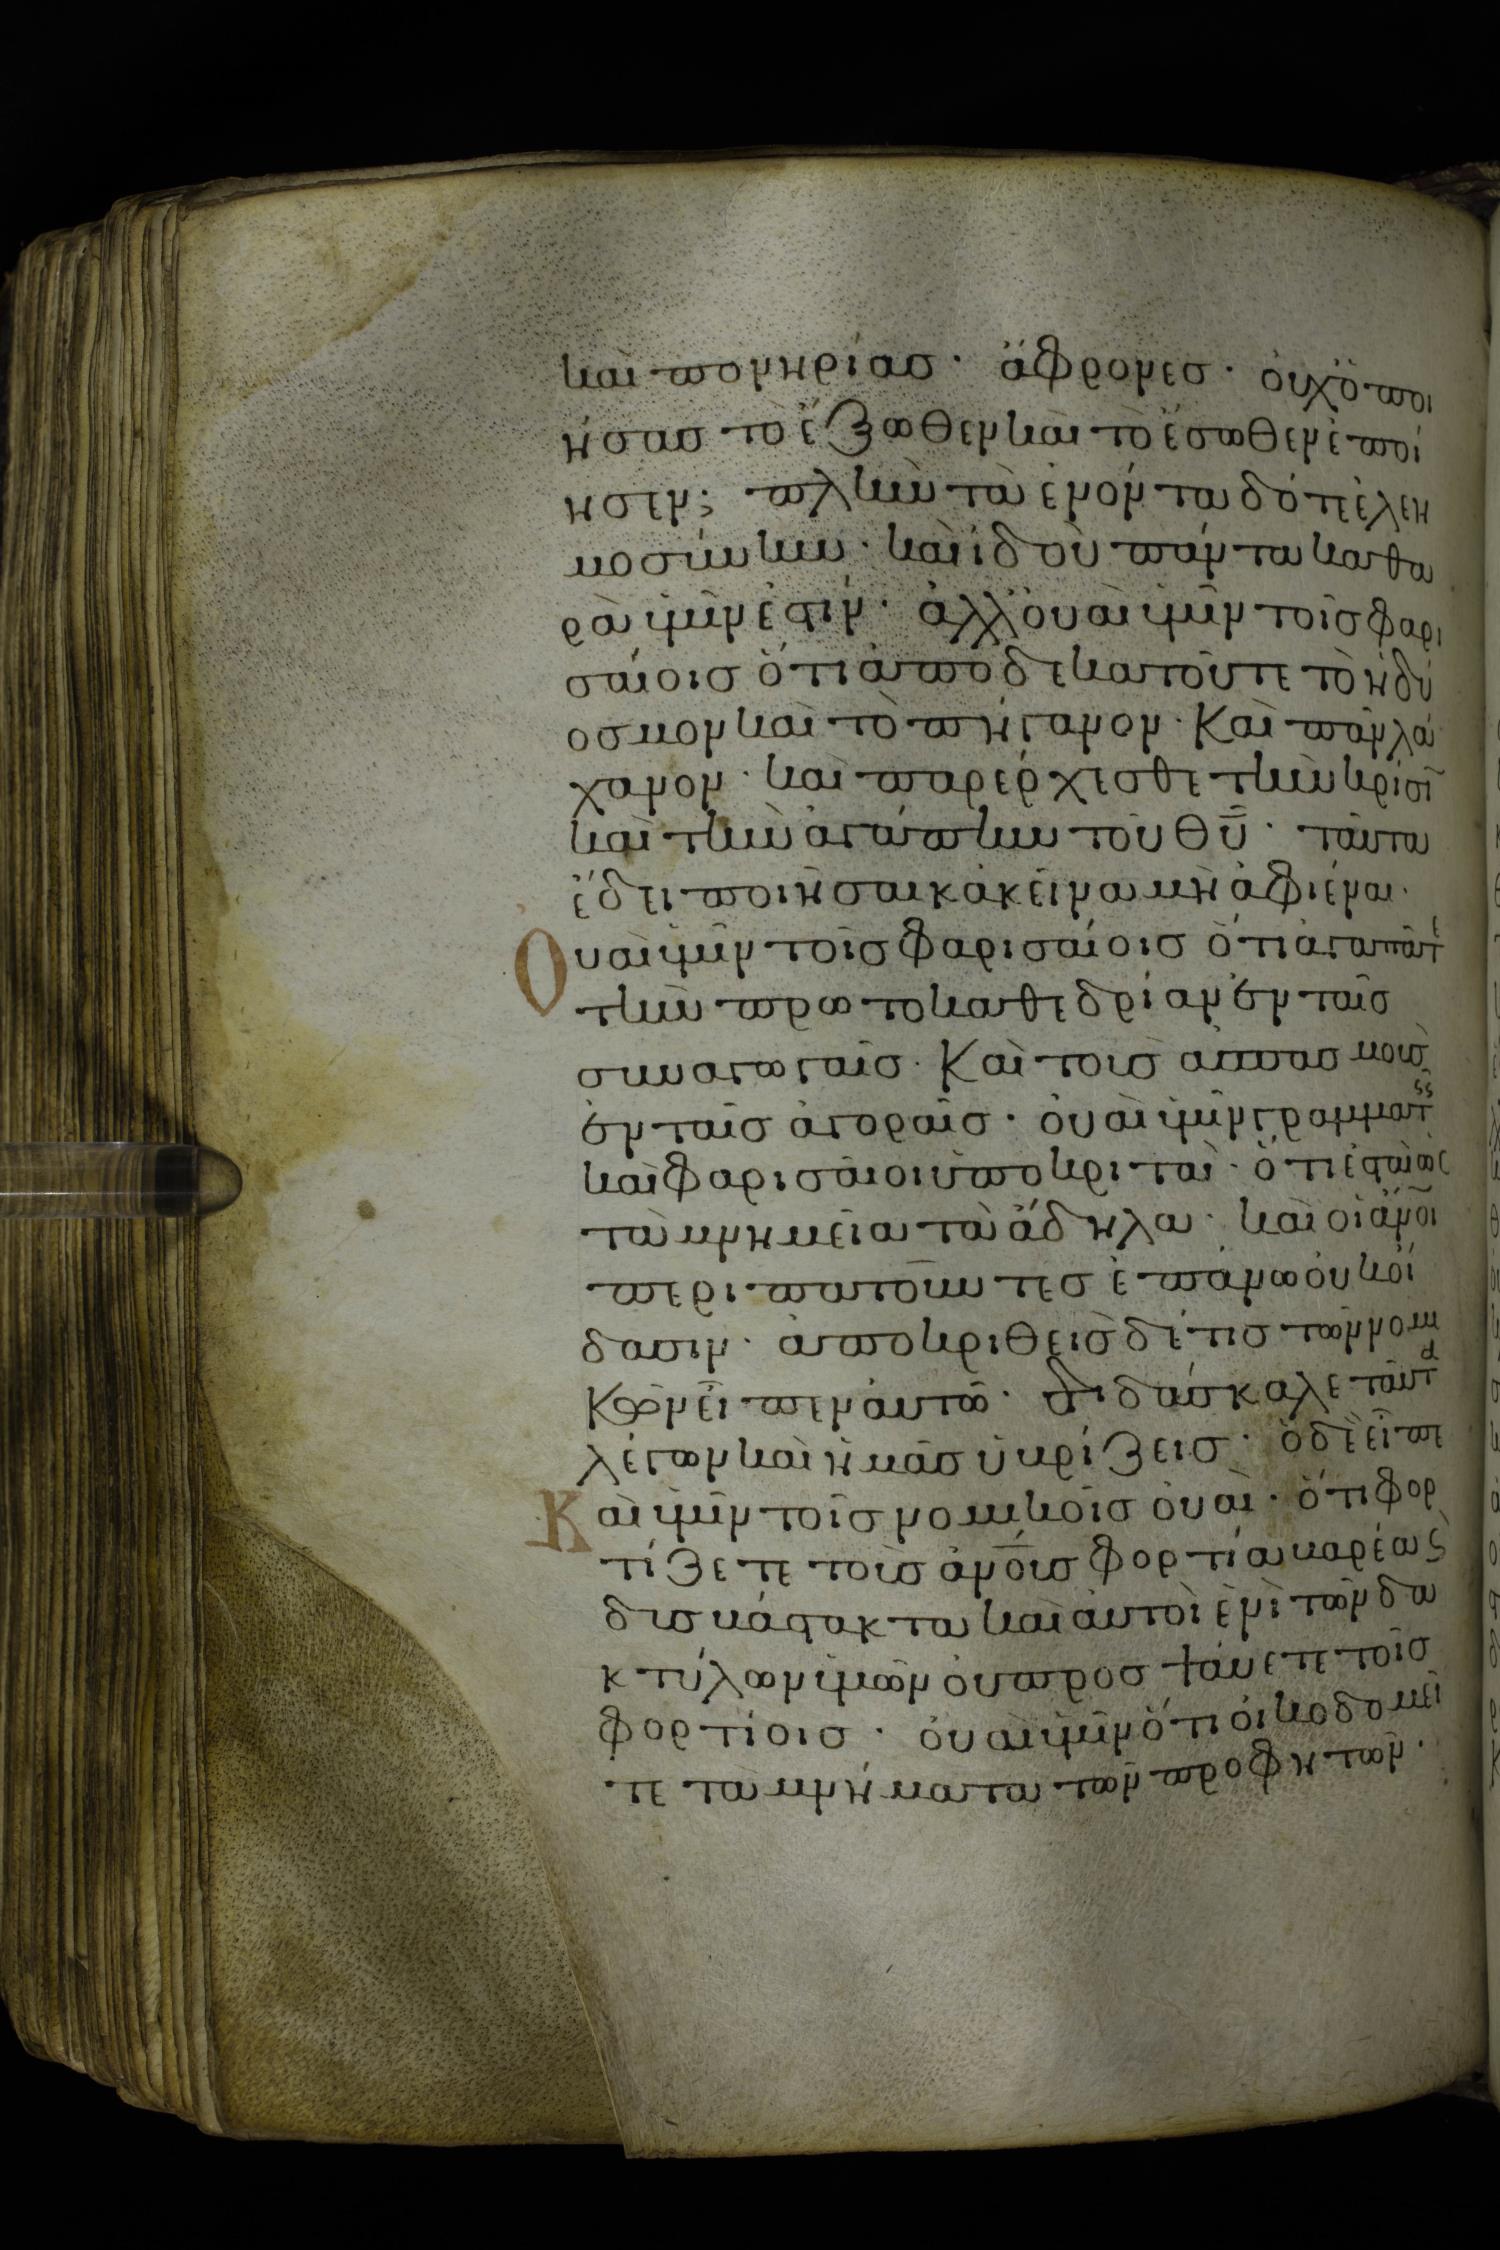 καὶ πονηρίας· ἄφρονες· οὐχ ὁ ποι
ήσας τὸ ἔξωθεν καὶ τὸ ἔσωθεν ἐποί
ησεν; πλὴν τὰ ἐνόντα δότε ἐλεη
μοσύνην· καὶ ἰδοὺ πάντα καθα
ρὰ ὑμῖν ἐστίν· ἀλλ' οὐαὶ ὑμῖν τοῖς φαρι
σαίοις ὅτι ἀποδεκατοῦτε τὸ ἡδύ
οσμον καὶ τὸ πήγανον· Καὶ πᾶν λά
χανον· καὶ παρέρχεσθε τὴν κρίσι̅
καὶ τὴν ἀγάπην τοῦ θ̅υ̅· ταῦτα
ἔδει ποιῆσαι κἀκεῖνα μὴ ἀφιέναι·
Οὐαὶ ὑμῖν τοῖς φαρισαίοις ὅτι ἀγαπᾶτ
τὴν πρωτοκαθεδρίαν ἐν ταῖς
συναγωγαῖς· Καὶ τοὺς ἀσπασμοὺς
ἐν ταῖς ἀγοραῖς· οὐαὶ ὑμῖν γραμματς
καὶ φαρισαῖοι ὑποκριταὶ· ὅτι ἐσταὶ ὡς
τὰ μνημεῖα τὰ ἄδηλα· καὶ οἱ ἄν̅οι
περιπατοῦντες ἐπάνω οὐκ οἴ
δασιν· ἀποκριθεὶς δέ τις τῶν νομι
Κῶν εἶπεν αὐτῶ· Διδάσκαλε ταῦτ
λέγων καὶ ἡμᾶς ὑβρίζεις· ὁ δὲ εἶπε
Καὶ ὑμῖν τοῖς νομικοῖς οὐαὶ· ὅτι φορ
τίζετε τοὺς ἀν̅ους φορτία βαρέα ς
δυσβάστακτα καὶ αὐτοὶ ἑνὶ τῶν δα
κτύλων ὑμῶν οὐ προσψαύετε τοῖς
φορτίοις· οὐαὶ ὑμῖν ὅτι οἰκοδομεῖ
τε τὰ μνήματα τῶν προφητῶν·